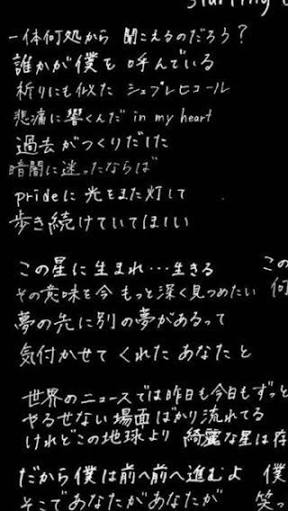 一体何処から 聞こえるのだろう?
誰かが僕を 呼んでいる
祈りにも似た シュプレヒコール
悲痛に響くんだ in my heart
過去がつくりだした
暗闇に迷ったならば
prideに 光をまた灯して
歩き続けていてほしい
この星に生まれ…生きる この
その意味を今 もっと深く見つめたい 何
夢の先に別の夢があるって
気付かせて くれた あなたと
世界のニュースでは昨日も今日もずっと
やるせない場面ばかり流れてる
けれどこの地球より 綺麗な星は存
だから僕は前へ前へ進むよ 僕
そこであなたがあなたが 笑っ